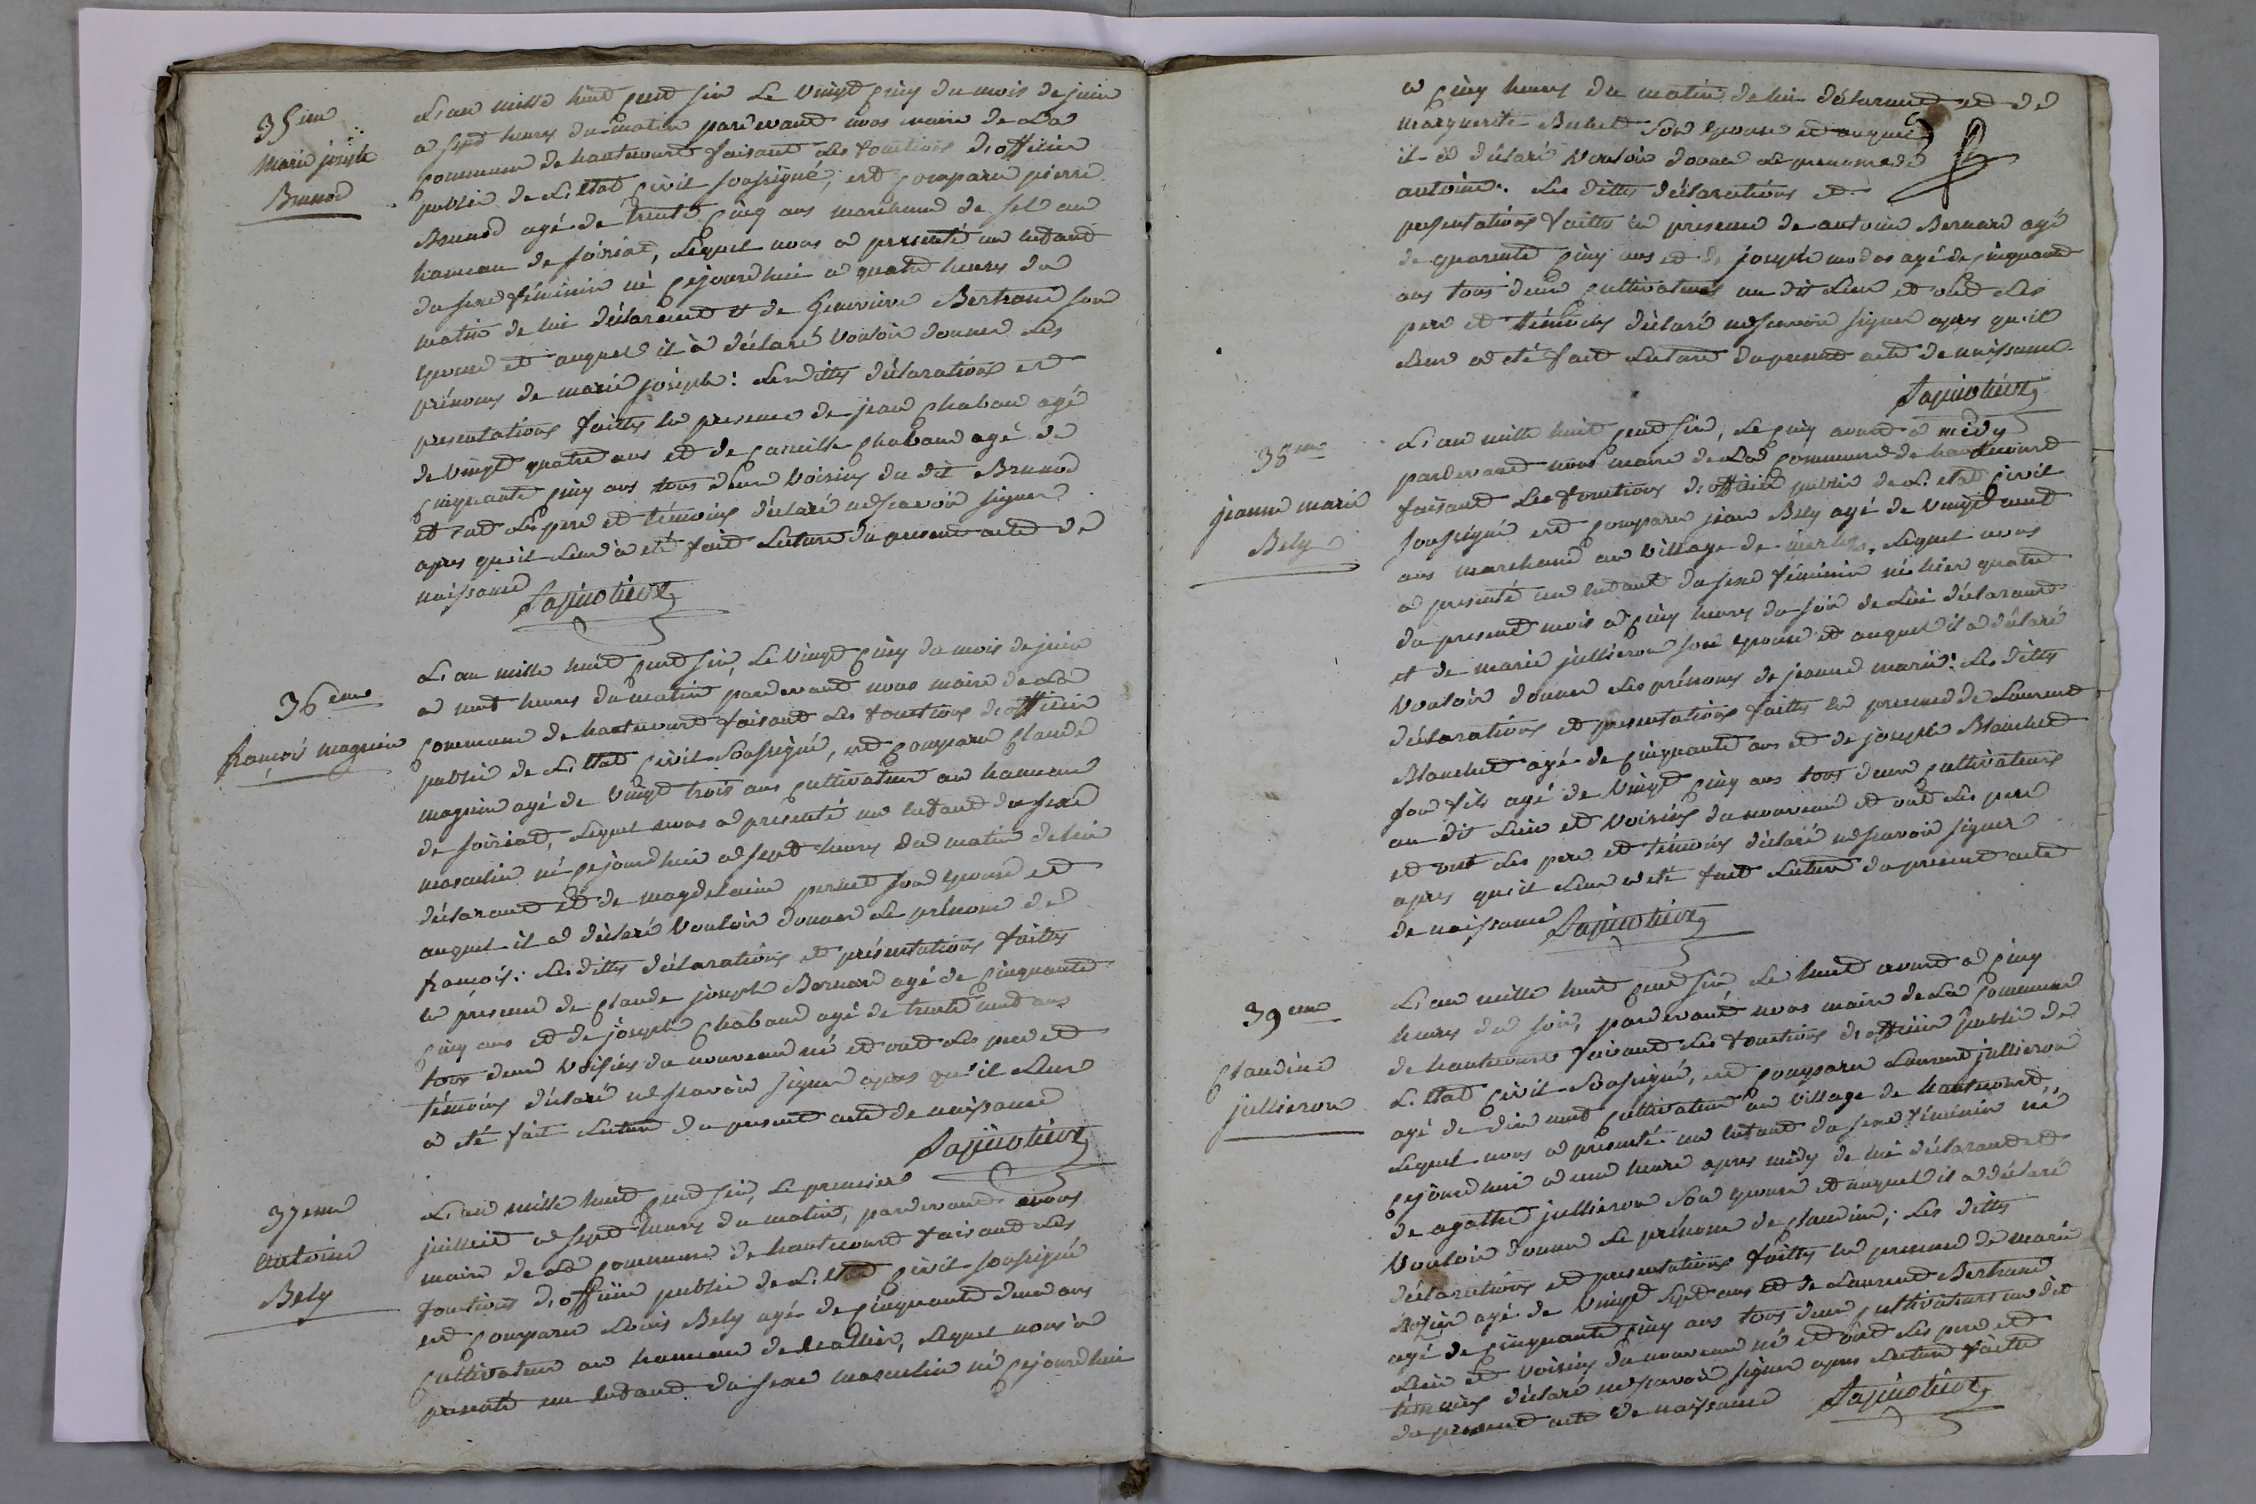 35eme
Marie joseph
Brunod
L'an mille huit cent six Le vingt cinq du mois de juin
a sept heures du matin pardevant nous maire de La
commune de hautecourt faisant Les fonctions d'officier
public de L'ettat civil soussigné, est comparu pierre
Brunod agé de trente cinq ans marchand de sel au
hameau de soiriat, Lequel nous a presenté un enfant
du sexe féminin né cejourd'hui a quatre heures du
matin de lui déclarant et de Geneviève Bertrand son
epouse et auquel il à déclaré vouloir donner Les
prénoms de marie joseph: Lesdittes déclarations et
presentations faittes en presence de jean Chaban agé
de vingt quatre ans et de camille Chaband agé de
cinquante cinq ans tous deux voisins du dit Brunod
et ont Les pere et témoins déclaré ne scavoir signer
apres qu'il Leur à eté fait Lecture du present acte de
naissance
36eme
françois magnin
L'an mille huit cent six, Le vingt cinq du mois de juin
a neuf heures du matin, pardevant nous maire de La
commune de hautecourt faisant Les fonctions d'officier
public de L'ettat civil soussigné, est comparu Claude
magnin agé de vingt trois ans cultivateur au hameau
de soiriat, Lequel nous a presenté un enfant du sexe
masculin né cejourd'hui a sept heures du matin de lui
déclarant et de magdelaine pernet son epouse et
auquel il a déclaré vouloir donner Le prénom de
françois: Lesdittes déclarations et présentations faittes
en présence de Claude joseph Bernard agé de cinquante
cinq ans et de joseph Chaband agé de trente neuf ans
tous deux voisins du nouveau né et ont Les pere et
témoins déclaré ne scavoir signer apres qu'il Leur
a eté fait Lecture du present acte de naissance
37eme
antoine
Bely
L'an mille huit cent six, Le premier
juillet a sept heures du matin, pardevant nous
maire de La commune de hautecourt faisant Les
fonctions d'officier public de L'ettat civil soussigné
est comparu Louis Bely agé de cinquante deux ans
cultivateur au hameau de Lequel nous a
presenté un enfant du sexe masculin né cejourd'hui
a cinq heures du matin de lui déclarant et de
marguerite Buchet son epouse et auquel
il a déclaré vouloir donner Le prenom de
antoine. Les dittes déclarations et
presentations faittes en presence de antoine Bernard agé
de quarente cinq ans et de joseph agé de cinquante
ans tous deux cultivateurs au dit Lieu et ont Les
pere et témoins déclaré ne scavoir signer apres qu'il
Leur a eté fait Lecture du present acte de naissance.
38eme
jeanne marie
Bely
L'an mille huit cent six, Le cinq avant a midy
pardevant nous maire de La commune de hautecourt
faisant Les fonctions d'officier public de L'etat civil
soussigné est comparu jean Bely agé de vingt neuf
ans marchand au village de Lequel nous
a presenté un enfant du sexe féminin né hier quatre
du present mois a cinq heures du soir de Lui déclarant
et de marie jullieron son epouse et auquel il a déclaré
vouloir donner Les prénoms de jeanne marie: Les dittes
déclarations et presentations faittes en presence de Laurent
Blanchet agé de cinquante ans et de joseph Blanchet
son fils agé de vingt cinq ans tous deux cultivateurs
au dit Lieu et voisins du nouveau et ont Les pere
et ont Les pere et témoins déclaré ne scavoir signer
apres qu'il Leur a eté fait Lecture du present acte
de naissance
39eme
Claudine
jullieron
L'an mille huit cent six Le huit avant a cinq
heures du soir, pardevant nous maire de La commune
de hautecourt faisant Les fonctions d'officier public de
L'ettat civil soussigné, est comparu Laurent jullieron
agé de dix neuf cultivateur au village de hautecourt,
Lequel nous a presenté un enfant du sexe féminin né
cejourd'hui a une heure apres midy de lui déclarant et
de agathe jullieron son epouse et auquel il a déclaré
vouloir donner Le prénom de Claudine; Les dittes
déclarations et presentations faittes en presence de marie
agé de vingt sept ans et de Laurent Bertrand
agé de cinquante cinq ans tous deux cultivateurs au dit
Lieu et voisins du nouveau né et ont Les pere et
témoins déclaré ne scavoir signer apres Lecture faitte
du present acte de naissance